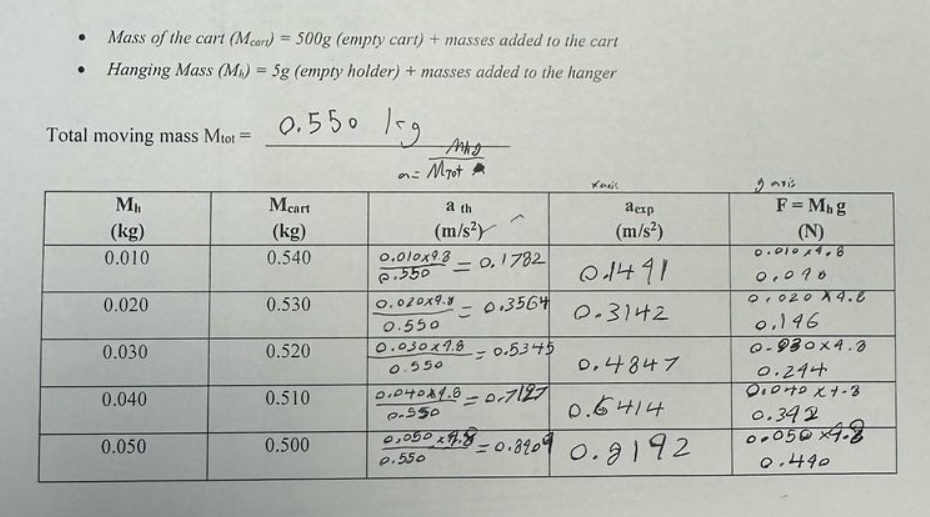 • Mass of the cart (Mcart) = 500g (empty cart) + masses added to the cart
• Hanging Mass (Mh) = 5g (empty holder) + masses added to the hanger
Total moving mass Mtot = 0.550 kg
a = Mhg / MTot
x axis y axis
Mh (kg) Mcart (kg) a th (m/s²) aexp (m/s²) F = Mh g (N)
0.010 0.540 0.010x9.8 / 0.550 = 0.1782 0.1491 0.010 x9.8 0.090
0.020 0.530 0.020x9.8 / 0.550 = 0.3564 0.3142 0.020 x9.8 0.196
0.030 0.520 0.030x9.8 / 0.550 = 0.5345 0.4847 0.030x9.8 0.294
0.040 0.510 0.040x9.8 / 0.550 = 0.7127 0.6414 0.040 x9.8 0.392
0.050 0.500 0.050x9.8 / 0.550 = 0.8909 0.8192 0.050 x9.8 0.490